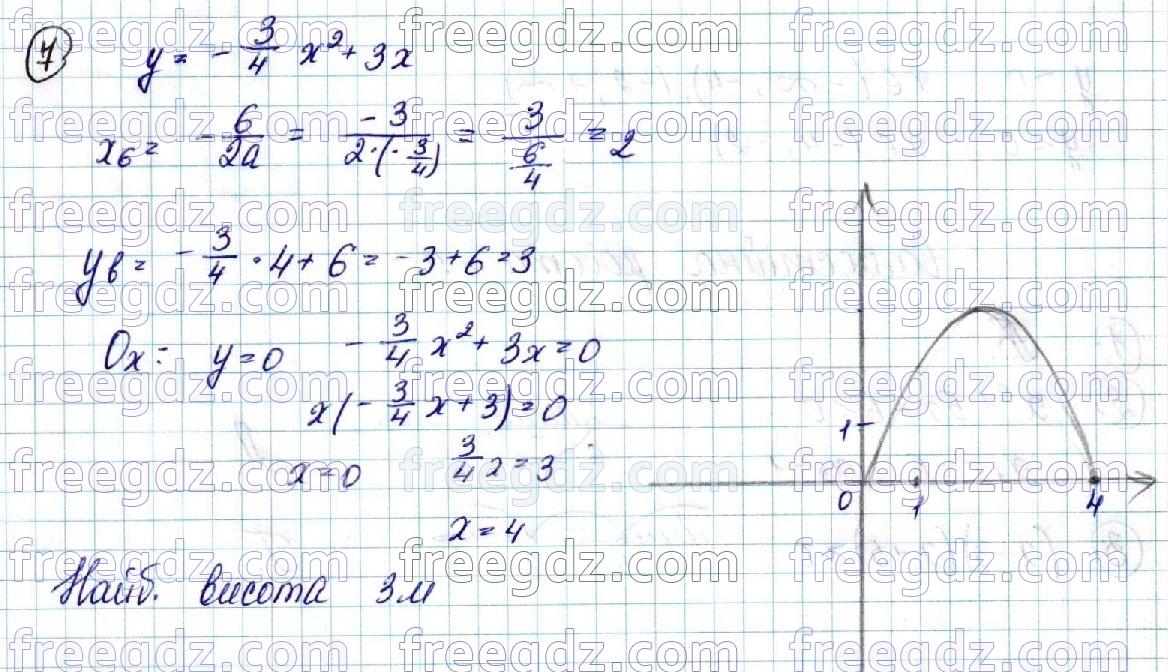 7 y = - 3/4 x² + 3x
xв = - в/2a = -3/(2·(-3/4)) = 3/(6/4) = 2
yв = - 3/4 · 4 + 6 = -3 + 6 = 3
Ox: y = 0 - 3/4 x² + 3x = 0
x(- 3/4 x + 3) = 0
x = 0 3/4 x = 3
x = 4
Найб. висота 3м
1
0 1 4
freegdz.com freegdz.com freegdz.com
freegdz.com freegdz.com freegdz.com
freegdz.com freegdz.com freegdz.com
freegdz.com freegdz.com freegdz.com
freegdz.com freegdz.com freegdz.com
freegdz.com freegdz.com freegdz.com
freegdz.com freegdz.com freegdz.com
freegdz.com freegdz.com freegdz.com